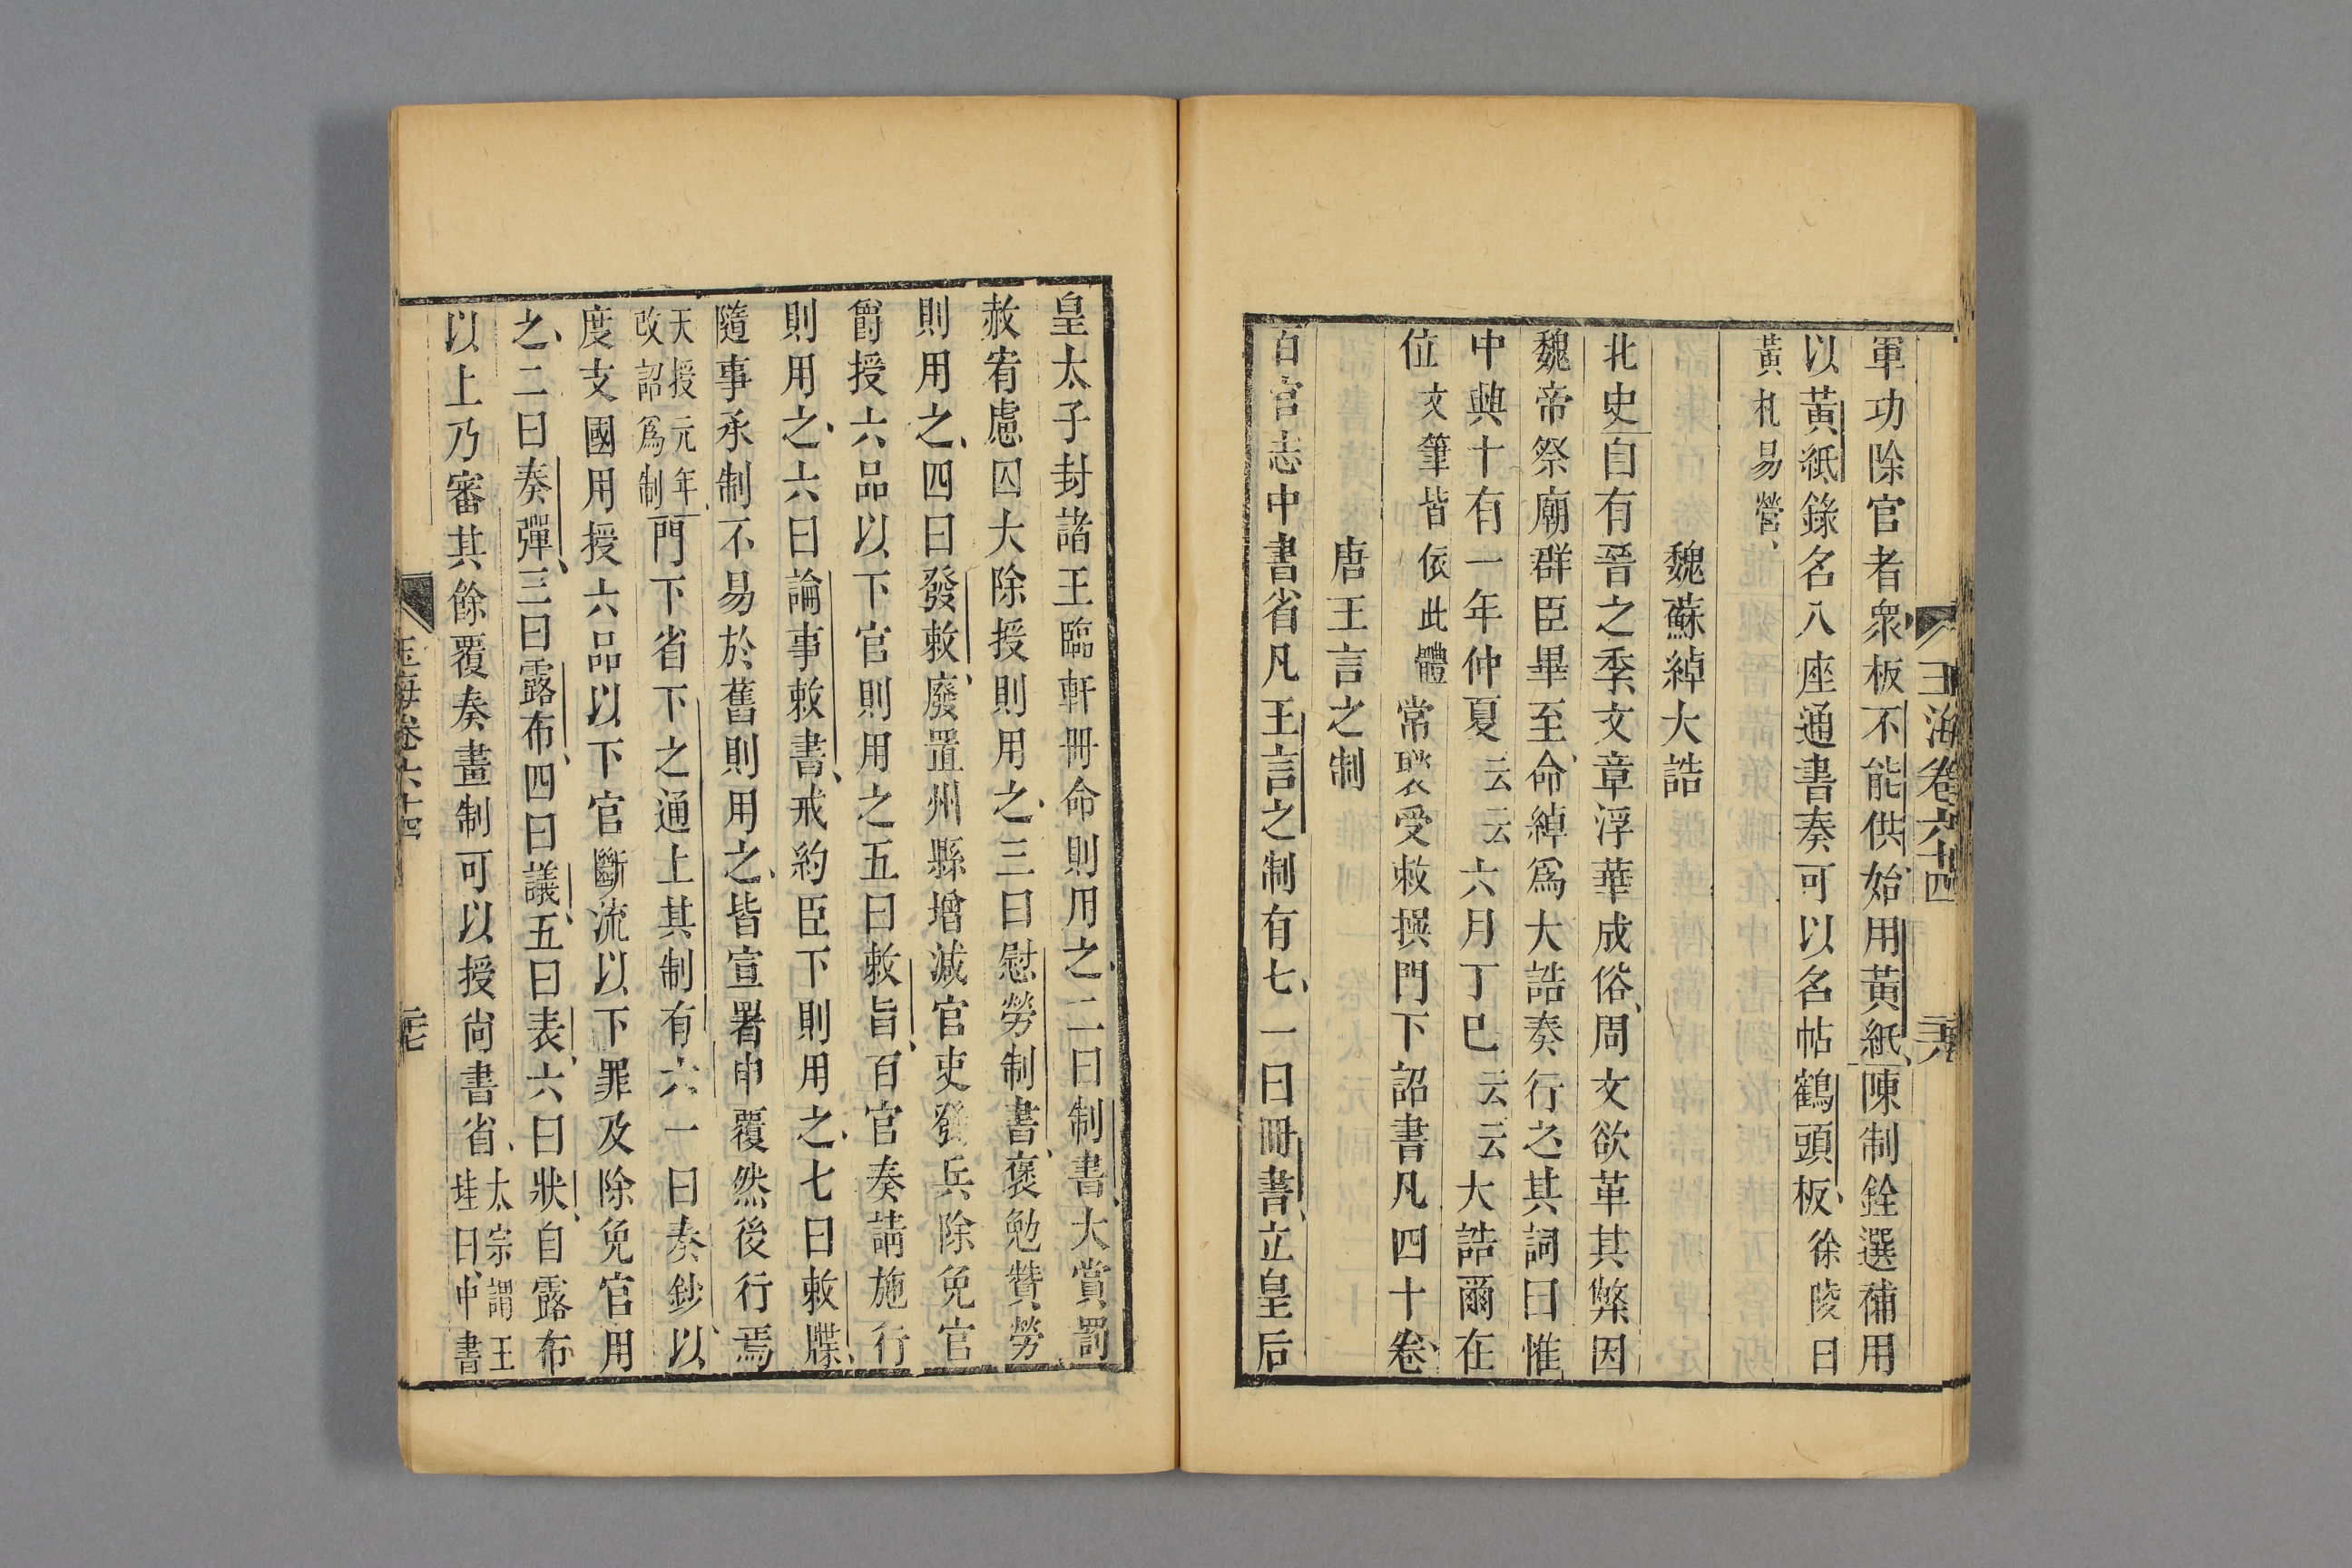 玉海卷六十四
軍功除官者衆板不能供始用黃紙陳制銓選補用
以黃紙錄名八座通書奏可以名帖鶴頭板徐陵曰
黃札易營
魏蘇綽大誥
北史自有晉之季文章浮華成俗周文欲革其弊因
魏帝祭廟群臣畢至命綽爲大誥奏行之其詞曰惟
中興十有一年仲夏云云六月丁巳云云大誥爾在
位文筆皆依此體常褧受敕撰門下詔書凡四十卷
唐王言之制
百官志中書省凡王言之制有七一曰冊書立皇后
皇太子封諸王臨軒冊命則用之二曰制書大賞罰
赦宥慮囚大除授則用之三曰慰勞制書褒勉贊勞
則用之四曰發敕廢置州縣增減官吏發兵除免官
爵授六品以下官則用之五曰敕旨百官奏請施行
則用之六曰論事敕書戒約臣下則用之七曰敕牒
隨事承制不易於舊則用之皆宣署申覆然後行焉
天授元年
改詔爲制
門下省下之通上其制有六一曰奏鈔以
度支國用授六品以下官斷流以下罪及除免官用
之二曰奏彈三曰露布四曰議五曰表六曰狀自露布
以上乃審其餘覆奏畫制可以授尙書省
太宗謂王
珪曰中書
玉海卷六十四